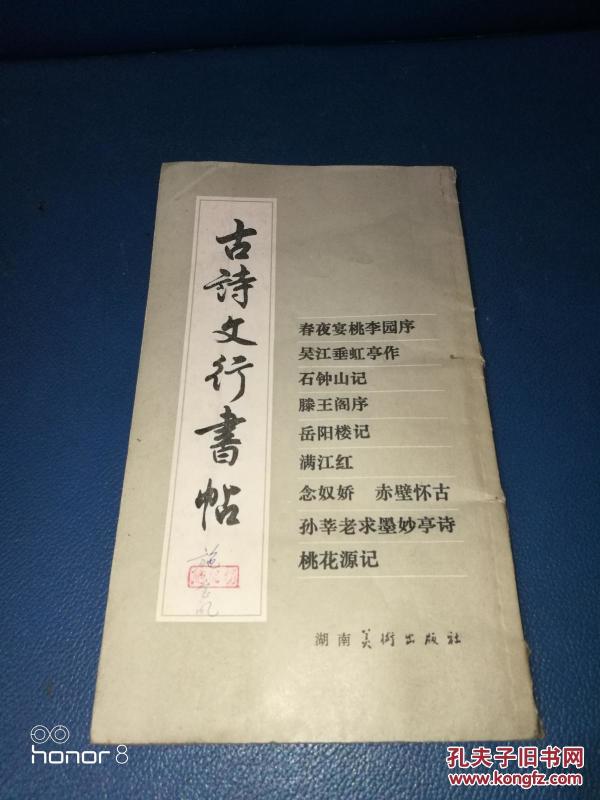 古詩文行書帖
春夜宴桃李园序
吴江垂虹亭作
石钟山记
滕王阁序
岳阳楼记
满江红
念奴娇 赤壁怀古
孙莘老求墨妙亭诗
桃花源记
湖南美術出版社
honor 8
孔夫子旧书网
www.kongfz.com